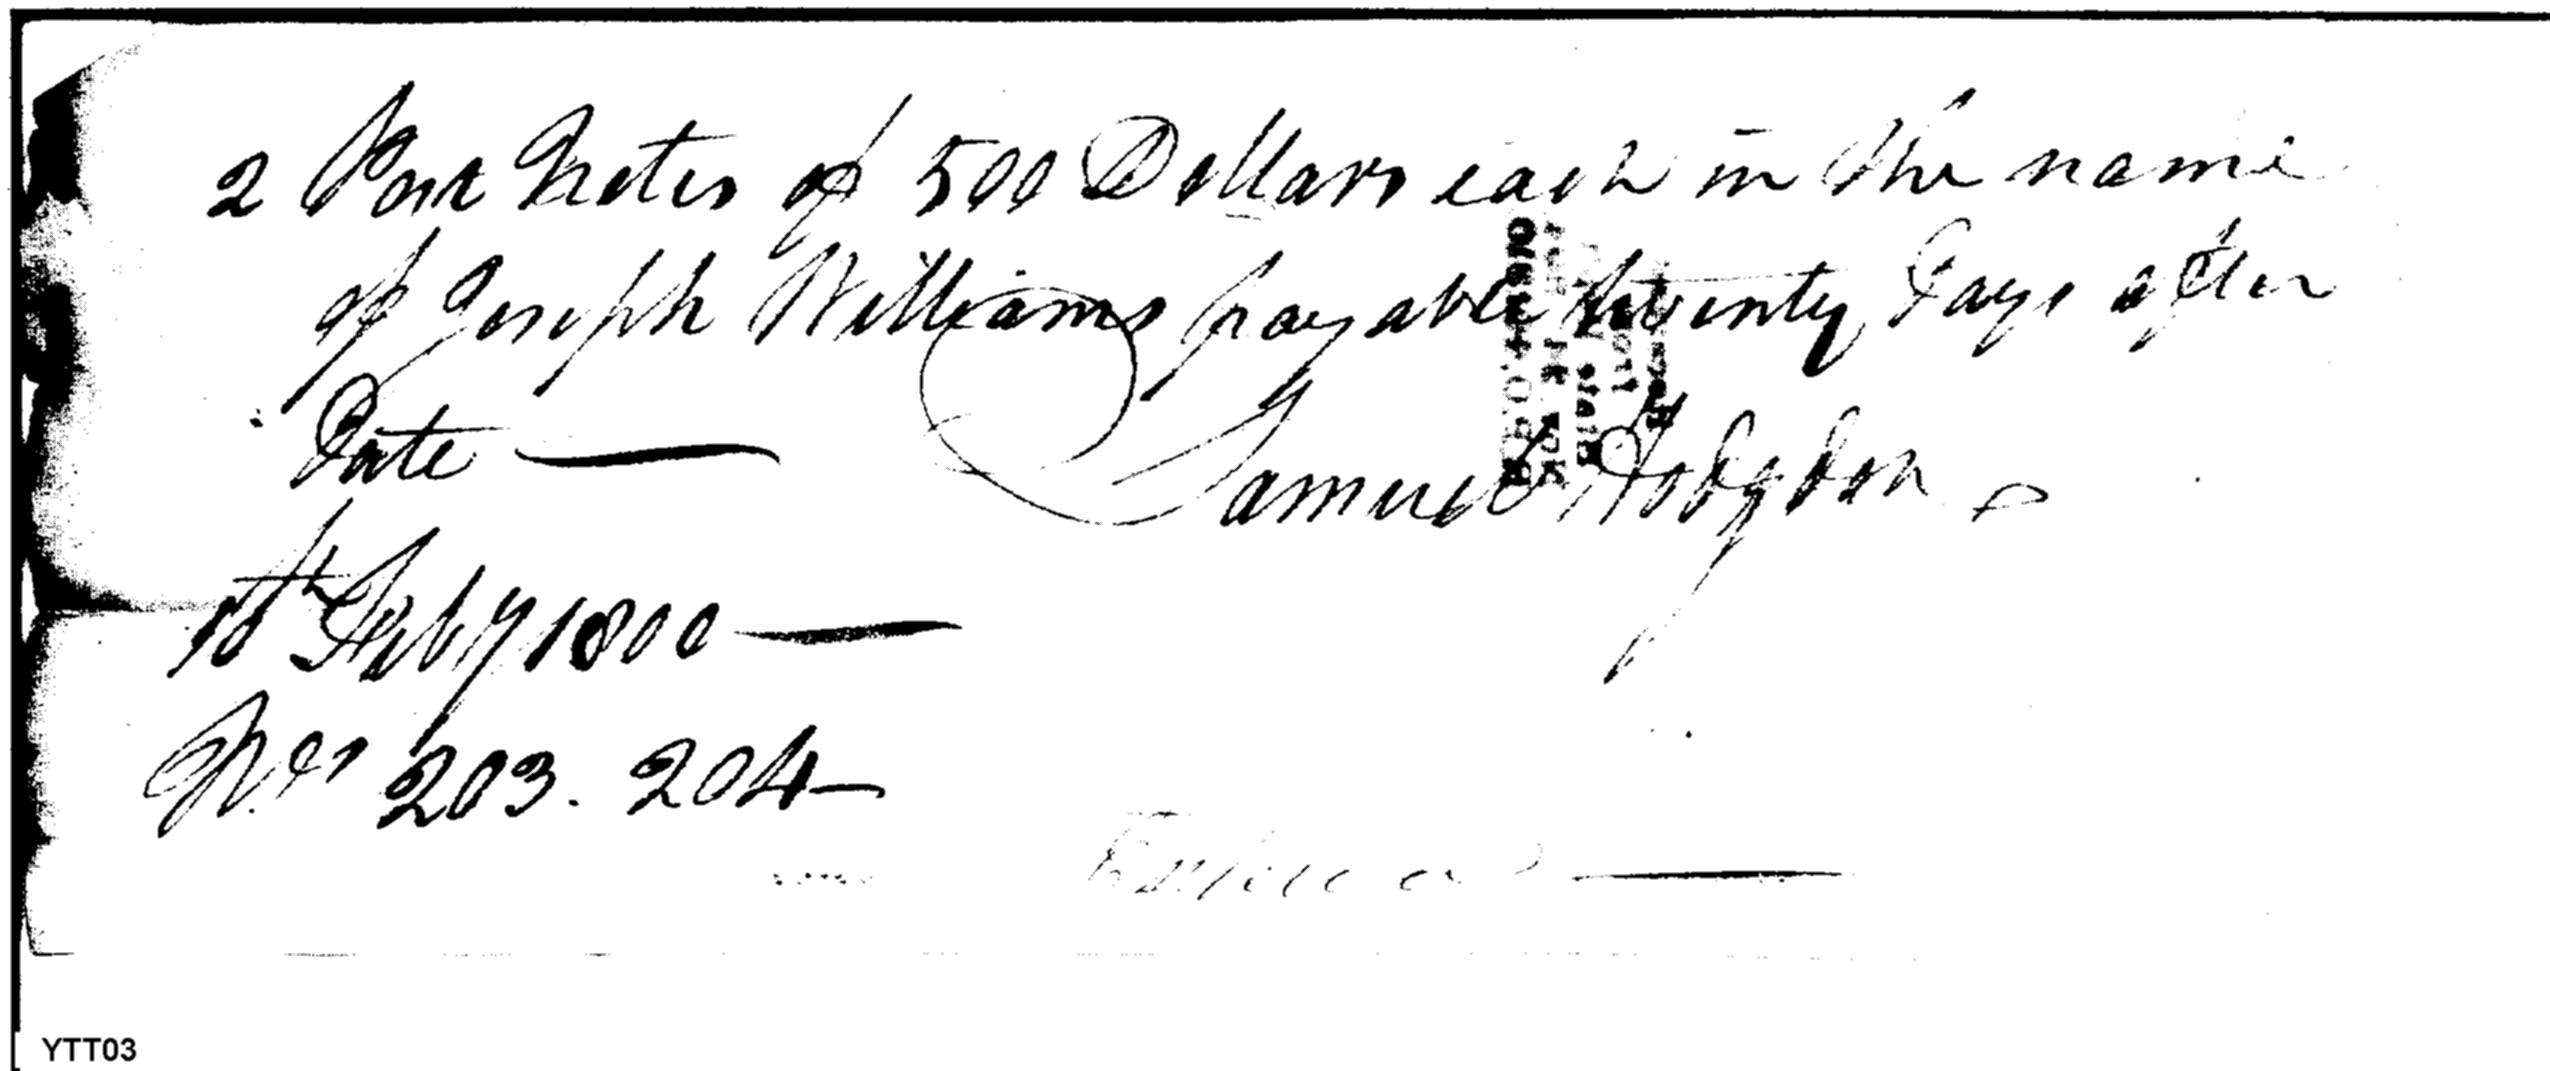 2 Post Notes of 500 Dollars each in the name
of Joseph Williams payable twenty Days after
Date —
Samuel Hodgdon
10th Feby 1800 —
Nos 203. 204 —
YTT03